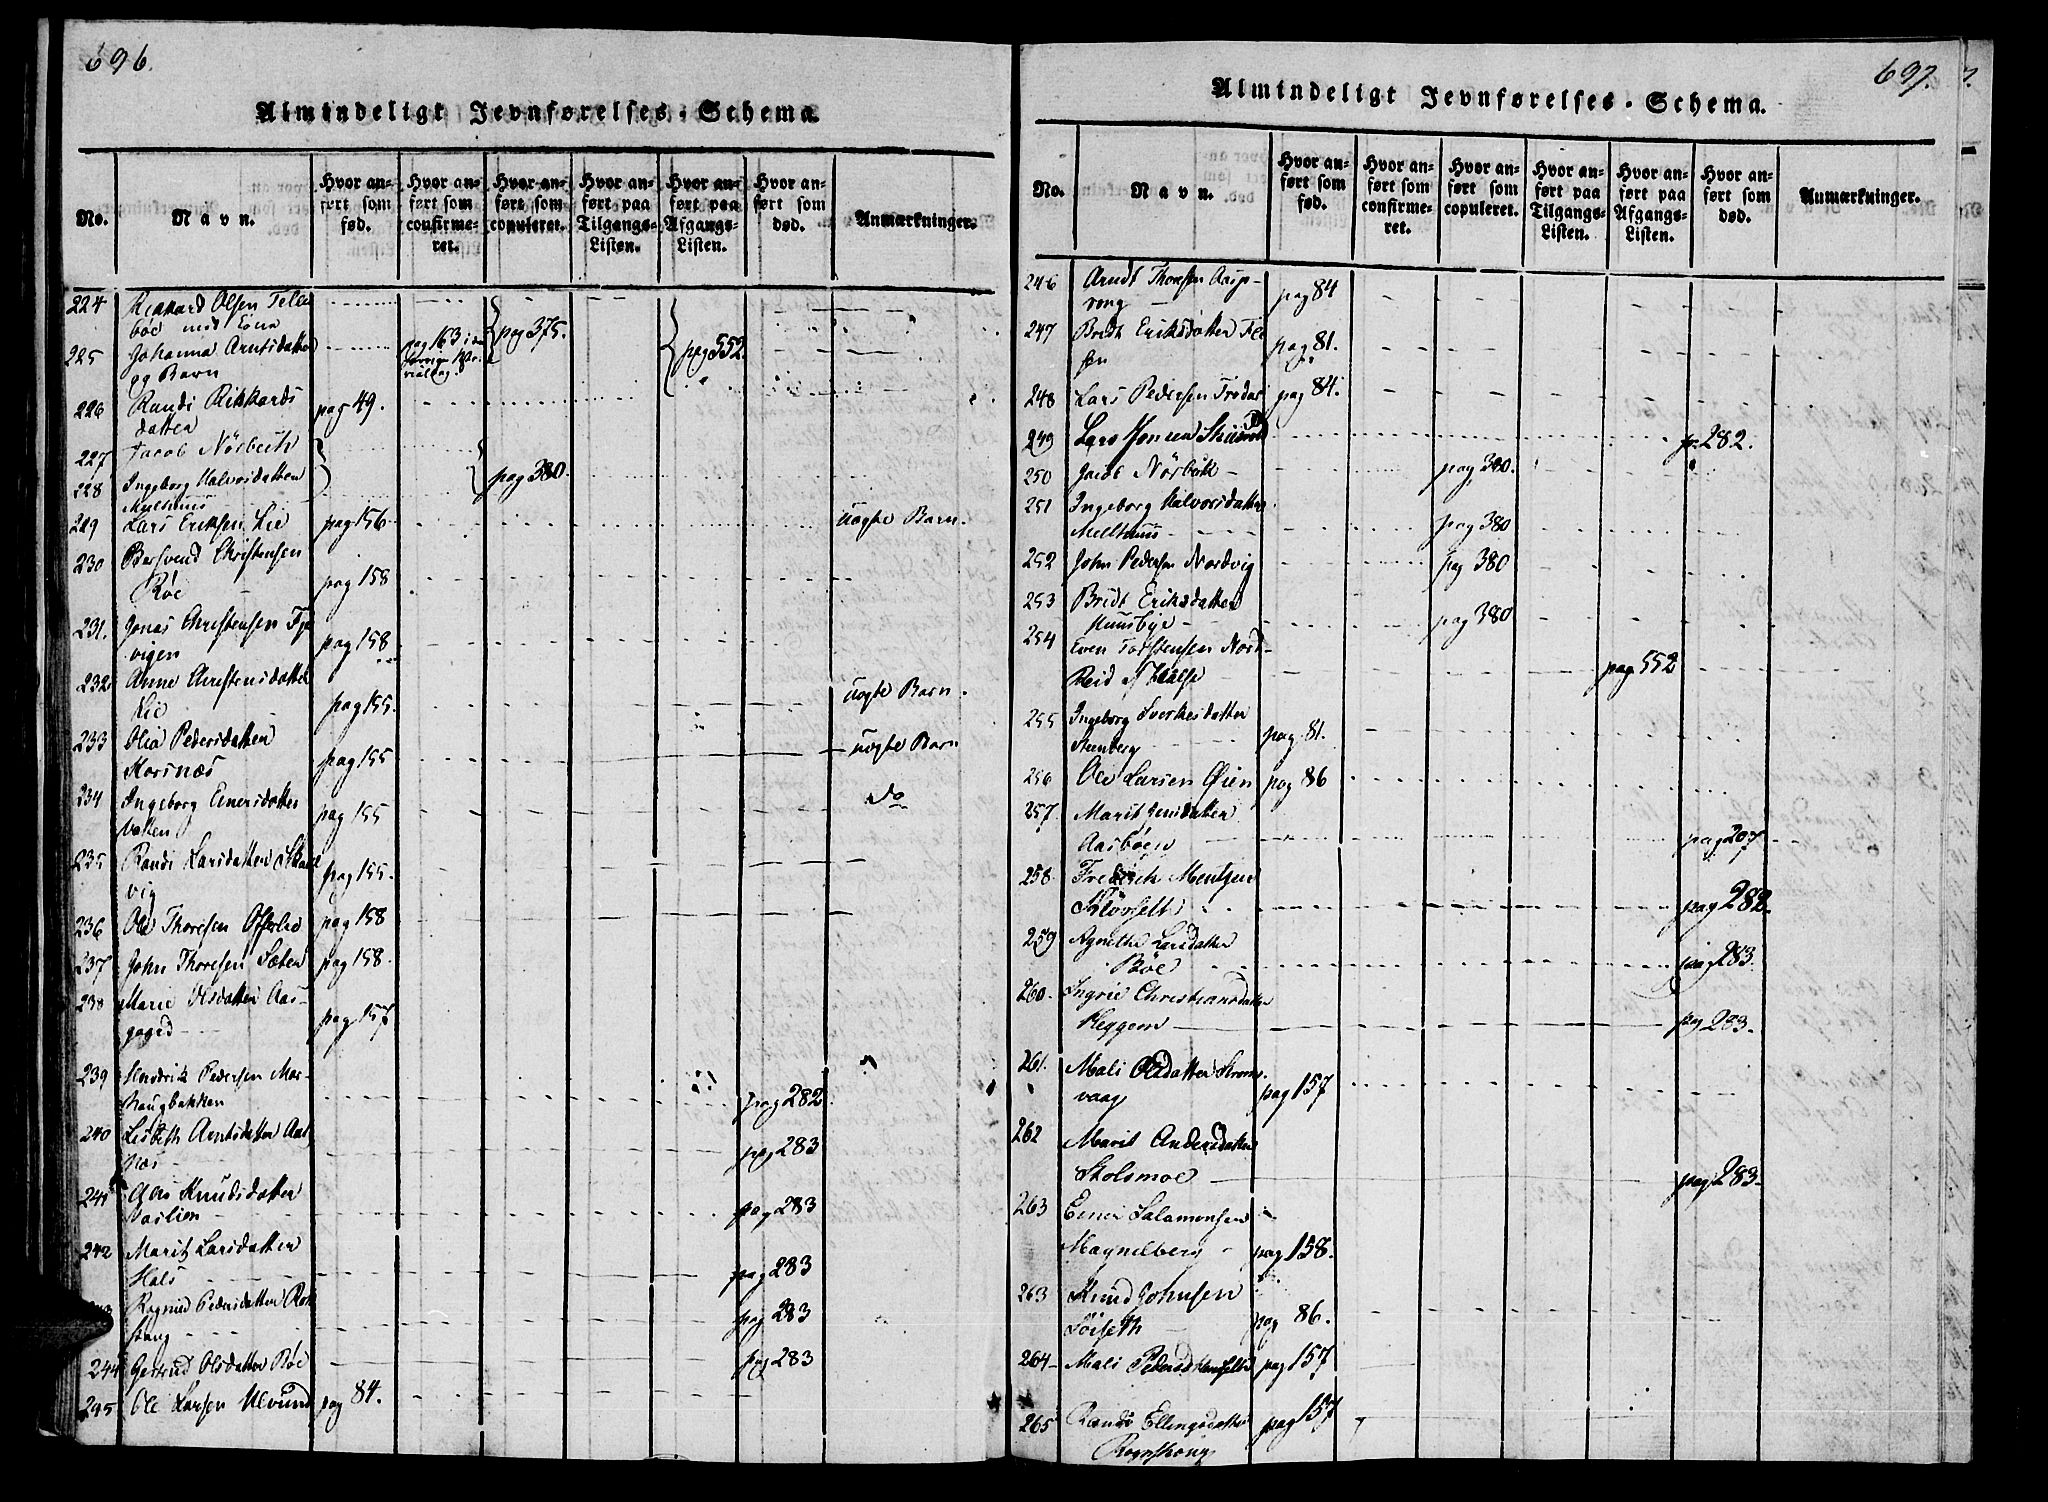 696.
Almindeligt Jevnførelses-Schema.
No. Navn. Hvor anført som fød. Hvor anført som confirmeret. Hvor anført som copuleret. Hvor anført paa Tilgangs-Listen. Hvor anført paa Afgangs-Listen. Hvor anført som død. Anmærkninger.
224 Rikkard Olsen
bøe med Kone
225 Johanna Arntsdatter pag 163 pag 375. pag 552.
og Barn
226 Randi Rikkards pag 49.
datter
227 Jacob Nörbech
228 Ingeborg Halvorsdatter pag 380.
Melhuus
229 Lars Eriksen Lie pag 156 uægte Barn.
230 Bersvend Christensen
Röe pag 158
231. Jonas Christensen
vigen pag 158
232 Anne Christensdatter
Lie pag 155. uægte Barn.
233 Olia Pedersdatter
Korsnæs pag 155 uægte Barn
234 Ingeborg Einersdatter
Vatten pag 155 do
235 Randi Larsdatter
vig pag 155.
236 Ole Thoresen pag 158
237 John Thoresen Sæter pag 158.
238 Marie Olsdatter Aas-
pag 157
239 Hendrik Pedersen Mor-
haugbakken pag 282.
240 Lisbeth Arntsdatter
næs pag 283
241 Knudsdatter
pag 283
242 Marit Larsdatter
Hals pag 283
Ragnild Pedersdatter
pag 283
244 Gertrud Olsdatter Böe pag 283
245 Ole Larsen Ulvund pag 84.
697.
Almindeligt Jevnførelses-Schema.
No. Navn. Hvor anført som fød. Hvor anført som confirmeret. Hvor anført som copuleret. Hvor anført paa Tilgangs-Listen. Hvor anført paa Afgangs-Listen. Hvor anført som død. Anmærkninger.
246 Arndt Thoresen
pag 84
247 Bredt Eriksdatter
pag 81.
248 Lars Pedersen pag 84.
249 Lars Jensen 282.
250 Jacob Nörbech pag 380.
251 Ingeborg Halvorsdatter
Melhuus pag 380
252 John Pedersen Nordvig pag 380
253 Bredt Eriksdatter
Huusbye pag 380
254 Even Torstensen Nord-
Heid pag 552
255 Ingeborg Sverkesdatter
Stenberg pag 81.
256 Ole Larsen Øien pag 86
257 Marit Jensdatter
Aasböen pag 207
258 Fredrich Mentzen
pag 282.
259 Agnethe Larsdatter
Böe pag 283.
260. Ingrie Christiansdatter
Heggem pag 283.
261. Mali Olsdatter Strøms-
vaag pag 157
262 Marit Andersdatter
Stolsmoe pag 283
263 Einer Salamonsen
Magnelberg pag 158.
263 Knud Johnsen
pag 86.
264 Mali Pedersd pag 157
265 Randi Ellingsdatter pag 157